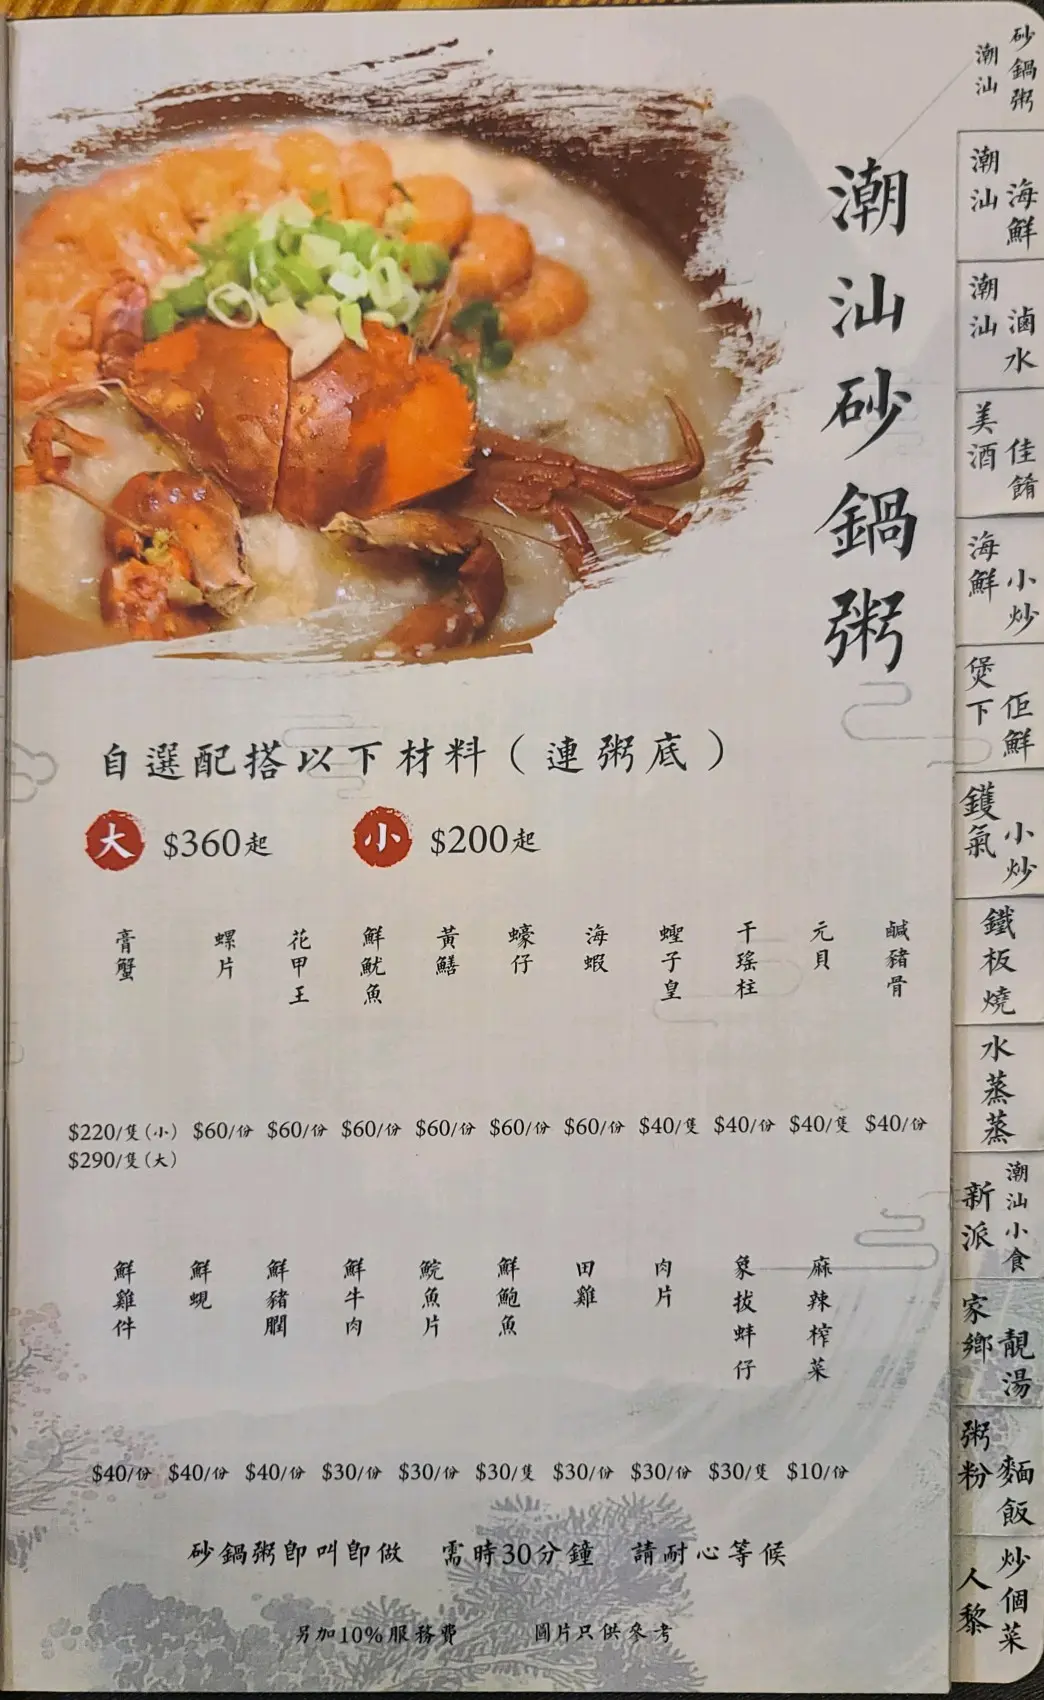 潮汕砂鍋粥
自選配搭以下材料（連粥底）
大 $360起
小 $200起
膏蟹
螺片
花甲王
鮮魷魚
黃鱔
蠔仔
海蝦
蟶子皇
干瑤柱
元貝
鹹豬骨
$220/隻(小) $60/份 $60/份 $60/份 $60/份 $60/份 $60/份 $40/隻 $40/份 $40/隻 $40/份
$290/隻(大)
鮮雞件
鮮蜆
鮮豬膶
鮮牛肉
鯇魚片
鮮鮑魚
田雞
肉片
象拔蚌仔
麻辣榨菜
$40/份 $40/份 $40/份 $30/份 $30/份 $30/隻 $30/份 $30/份 $30/隻 $10/份
砂鍋粥即叫即做 需時30分鐘 請耐心等候
另加10%服務費 圖片只供參考
潮汕
砂鍋粥
潮汕
海鮮
潮汕
滷水
美酒
佳餚
海鮮
小炒
煲下
佢鮮
鑊氣
小炒
鐵板燒
水蒸蒸
新派
潮汕小食
家鄉
靚湯
粥粉
麵飯
炒個菜
人黎